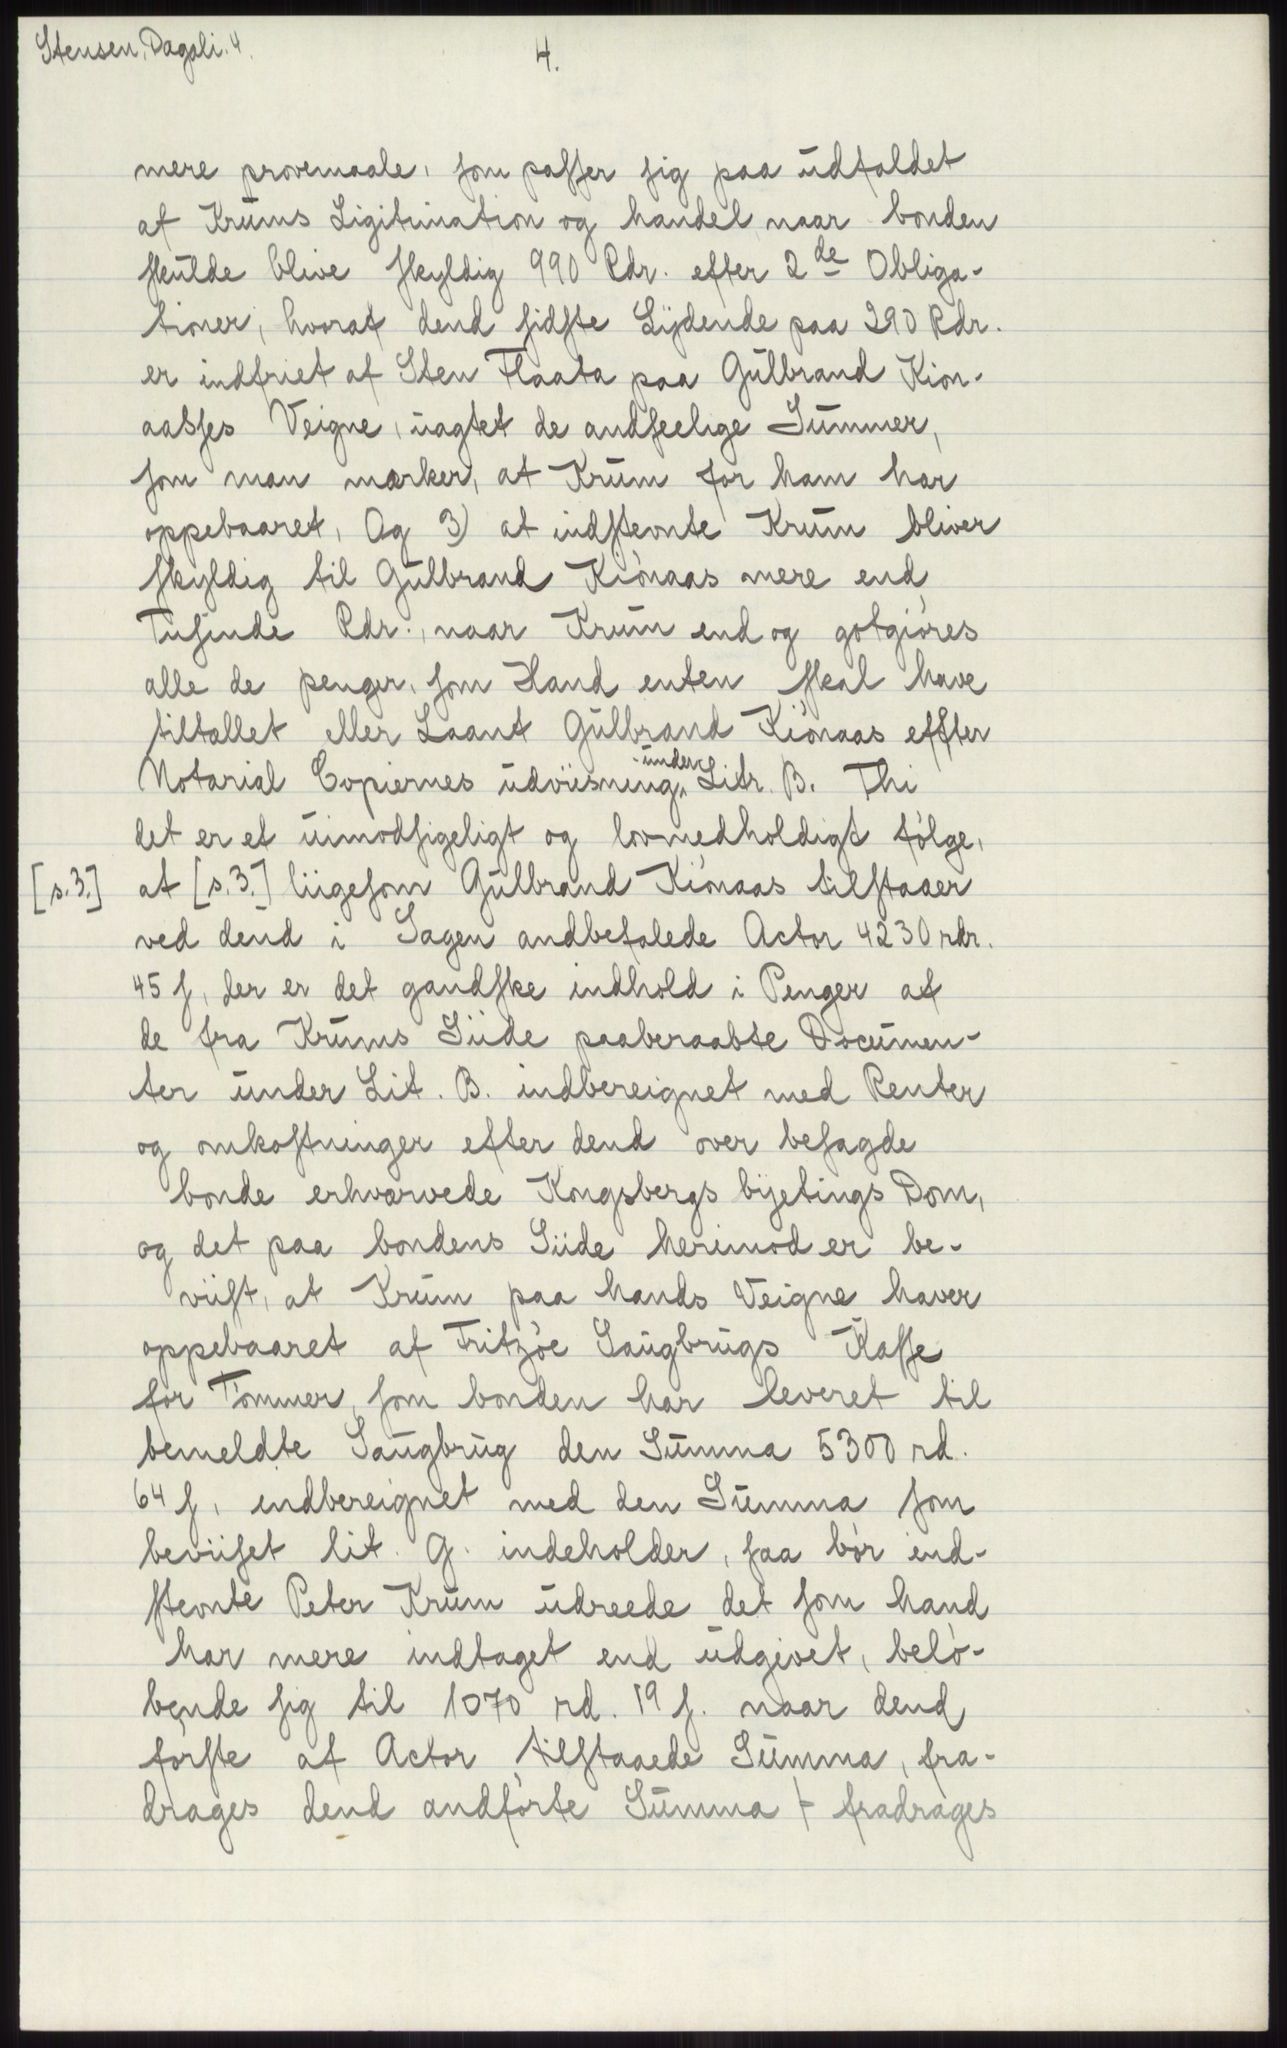 Stensen, Dagali. 4.
4.
mere provemaale, som passer sig paa udfaldet
af Krums Ligitimation og handel, naar bonden
skulde blive skyldig 990 Rdr. efter 2de Obliga-
tioner, hvoraf dend sidste Lÿdende paa 290 Rdr.
er indfriet af Sten Flaata paa Gulbrand Kiøn-
aasses Veigne, uagtet de andseelige Summer,
som man mærker, at Krum for ham har
oppebaaret, Og 3) at indstevnte Krum bliver
skyldig til Gulbrand Kiønaas mere end
Tusinde Rdr., naar Krum end og gotgiøres
alle de penger, som Hand enten skal have
tiltallet eller Laant Gulbrand Kiønaas effter
Notarial Copiernes udviisning under Litr. B. Thi
det er et uimodsigeligt og lovmedholdigt følge,
[s.3.] at [s.3.] liigesom Gulbrand Kiønaas tilstaaer
ved dend i Sagen andbefalede Actor 4230 rdr.
45 s, der er det gandske indhold i Penger af
de fra Krums Siide paaberaabte Documen-
ter under Lit. B. indbereignet med Renter
og omkostninger efter dend over besagde
bonde erhværvede Kongsbergs bÿetings Dom,
og det paa bondens Siide herimod er be-
viist, at Krum paa hands Veigne haver
oppebaaret af Fritzøe Saugbrugs Kasse
for Tømmer, som bonden har leveret til
bemeldte Saugbrug den Summa 5300 rd.
64 s, indbereignet med den Summa som
beviiset lit. G. indeholder, saa bør ind-
stevnte Peter Krum udreede det som hand
har mere indtaget end udgivet, belø-
bende sig til 1070 rd. 19 s. naar dend
første af Actor tilstaaede Summa, fra-
drages dend andførte Summa + fradrages